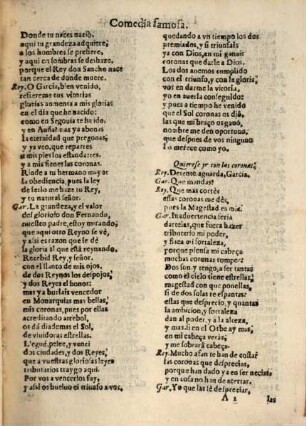 Comedia famosa.
Donde tu naces nació,
aqui tu grandeza adquiere,
a los hombres se prefiere,
y aqui en sombras se deshazo,
porque el Rey don Sancho nace
tan cerca de donde muere.
Rey. O Garcia, bien venido,
refierenme tus vitorias
glorias aumenta a mis glorias
en el dia que he nacido:
como en Segouia te ha ido,
y en Auila? nas ya abonas
la eternidad que pregonas,
y ya veo, que repartes
a mis pies los estandartes,
y a mis sienes las coronas.
Rinde a tu hermano mayor
la obediencia, pues la ley
de serlo me haze tu Rey,
y tu natural señor.
Gar. La grandeza, y el valor
del glorioso don Fernando,
nuestro padre, estoy mirando,
que aqui otro Reyno se vè,
y assi es razon que se dè
la gloria al que està reynando.
Recebid Rey, y señor,
con el llanto de mis ojos,
de dos Reynos los despojos,
y de dos Reyes el honor:
mas ya burlais vencedor
en Monarquias mas bellas,
mis coronas, pues por ellas
acreditando arrebol,
os dà diademas el Sol,
de viuidoras estrellas.
Llegué, peleé, y venci
dos ciudades, y dos Reyes,
que a vuestras gloriosas leyes
tributarios traygo aqui.
Por vos a vencerlos fuy,
y assi os bueluo el triunfo a vos,
quedando a vn tiempo los dos
premiados, y si triunfais
ya con Dios, en mi ganais
coronas que darle a Dios.
Los dos auemos cumplido
con el triunfo, y con la gloria,
vos en darla por vitoria,
yo en gozarla por vencido;
y pues a tiempo he venido
que el Sol coronas os diò,
las que os traygo aqui no,
nombre me den oportuno,
que despues de vos ninguno
lo merece como yo.
Quierese yr con las coronas.
Rey. Detente, aguarda, Garcia.
Gar. Que mandas?
Rey. Que mas cortès
essas coronas me dès,
pues la Magestad es mia.
Gar. Inaduertencia seria
dartelas, que fuera hazer
tributario mi poder,
y flaca mi fortaleza,
porque piensa mi cabeça
muchas coronas romper.
Dos son y tengo, a ser tantas
como el cielo tiene estrellas,
magestad con que ponellas,
si de dos solas te espantas:
ellas que desprecio, y quantas
la ambicion, y fortaleza
dan al poder, y a la alteza,
y mas, si en el Orbe ay mas,
en mi cabeça veràs,
y me sobrarà cabeça.
Rey. Mucho afan te han de costar
las coronas que desprecias,
porque han dado ya en ser necias,
y en cosas no han de acertar.
Gar. Yo que las sè despreciar,
A 2
las